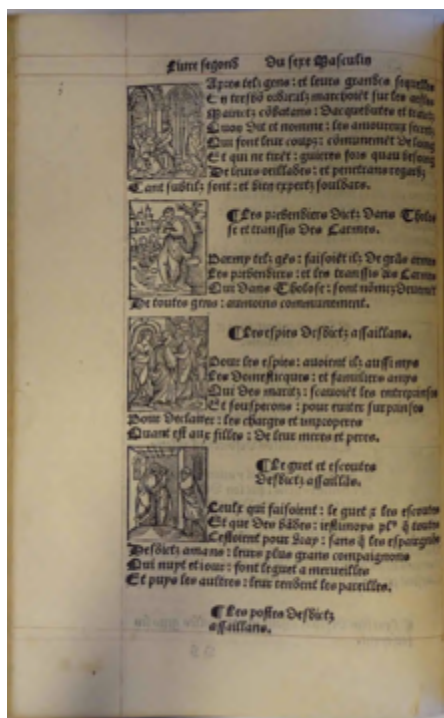 Livre segond Du sexe Masculin
Apres telz gens : et leurs grandes sequelles
En tresbõ marchoiẽt sur les
Maintz cõbatans : Dacquebutes et
Quon dit et nomme : les amoureux
Qui font leur coupz : cõmunemẽt de loing
Et qui ne tirẽt : guieres fors quau besoing
De leurs oeillades : et penetrans regardz
Tant subtilz sont : et bien expertz souldars.
¶ Les prebendiers dictz Dans Tholo
se et transsis des Carmes.
Parmy telz gẽs : faisoiẽt ilz de grãs armes
Les prebendiers : et les transsis des Carmes
Qui dans Tholose : sont nõmez
De toutes gens : aumoins communement.
¶ Les espies desdictz assaillans.
Pour les espies : auoient ilz aussi mys
Les domesticques : et familiers amys
Qui des maritz : scauoiẽt les entreprises
Et souspesons : pour euiter surprises
Pour declairer : les charges et improperes
Quant est aux filles : de leur meres et peres.
¶ Le guet et escoutes
desdictz assaillãs.
Ceulx qui faisoient : le guet et les escoutes
Et que des dãdes : plꝰ q̃ toutes
Cestoient pour vray : sans q̃ les
Desdictz amans : leurs plus grans compaignons
Qui nuyt et iour : font le guet a merueilles
Et puys les aultres : leur rendent les pareilles.
¶ Les postes desdictz
assaillans.